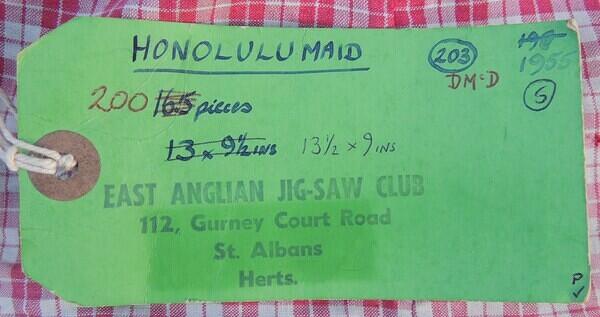 HONOLULU MAID
203
1955
DMcD
S
200 165 pieces
13 x 9½ INS 13½ x 9 INS
EAST ANGLIAN JIG-SAW CLUB
112, Gurney Court Road
St. Albans
Herts.
P